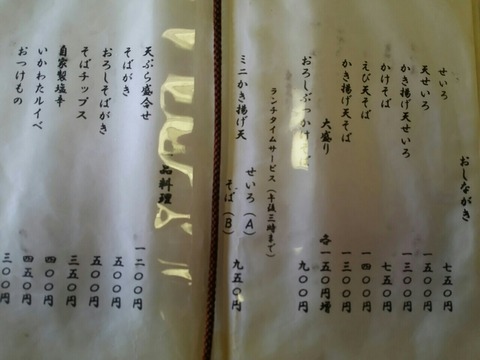 おしながき
せいろ 七五〇円
天せいろ 一五〇〇円
かき揚げ天せいろ 一三〇〇円
かけそば 七五〇円
えび天そば 一四〇〇円
かき揚げ天そば 一三〇〇円
大盛り 各一五〇円増
おろしぶっかけ ば 九〇〇円
ランチタイムサービス（午後三時まで）
ミニかき揚げ天 せいろ（A） 九五〇円
そば（B）
品料理
天ぷら盛合せ 一二〇〇円
そばがき 五〇〇円
おろしそばがき 五〇〇円
そばチップス 三五〇円
自家製塩辛 四五〇円
いかわたルイベ 四五〇円
おつけもの 三〇〇円